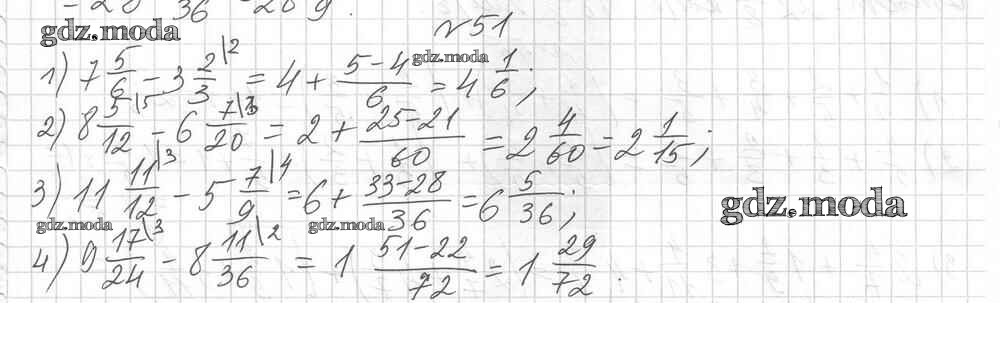 gdz.moda
№ 51
gdz.moda
1) 7 5/6 - 3 2/3 \2 = 4 + (5-4)/6 = 4 1/6;
2) 8 5/12 \5 - 6 7/20 \3 = 2 + (25-21)/60 = 2 4/60 = 2 1/15;
3) 11 11/12 \3 - 5 7/9 \4 = 6 + (33-28)/36 = 6 5/36;
gdz.moda
gdz.moda gdz.moda
4) 9 17/24 \3 - 8 11/36 \2 = 1 (51-22)/72 = 1 29/72.